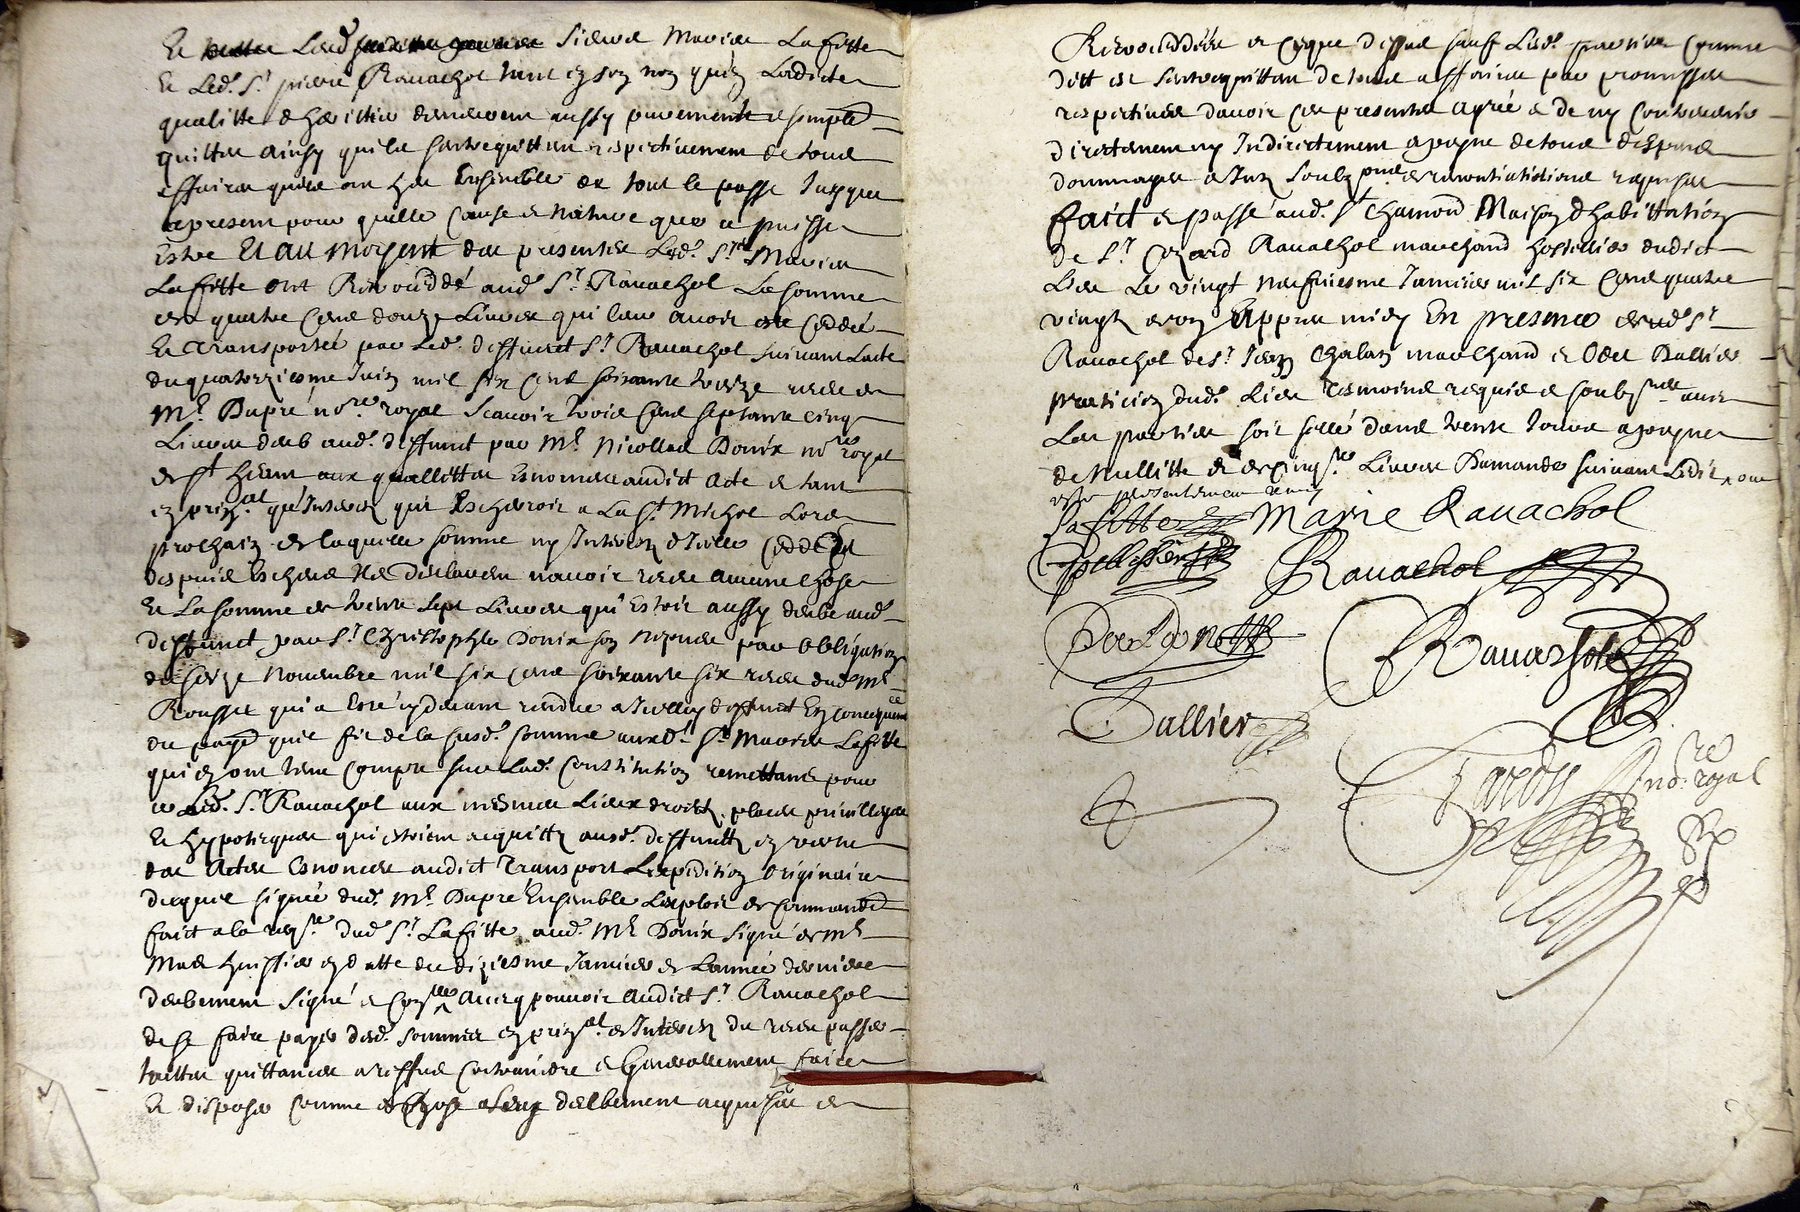 Et Led. sieur Mariee Lafitte
Et Led. Sr. pierre Ravachol tant en son nom qu'en Ladicte
qualitte d'heritier demeurent aussy purement e simplet
quittes ainsy quils sentrequittent respectivement de tous
affaires quils ont heu Ensemble de tout le passe Jusques
apresent pour quelle cause et nature que ce puisse
Estre Et au moyent des presentes Led. Sr. Mariee
Lafitte ont Retroceddé aud. Sr. Ravachol La somme
de quatre cens douze Livres qui leur avoit este ceddée
Et transportée par Led. deffunct Sr. Ravachol suivant Lacte
du quatorziesme Juin mil six cens soixante treize receu de
Me. Dupré nore. royal Scavoir trois cens septante cinq
Livres deub aud. deffunt par Me. Nicollas Donix nore royal
de St. hieme aux quallittes Esnoncees audict acte e tant
en prin.al qu'Interest qui Escheroit a La St. Michel Lors
prochain de laquelle somme ny Interest d'Icelle
despuis Escheus Ils desclarent navoir receu aucune chose
Et La somme de trente sept Livres qui Estoit aussy deube aud.
deffunct par Sr. Christophle Donix son nepveu par obligation
du seize novembre mil six cens soixante six receu dud. Me.
Rousset qui a Esté cydevant rendue a Icelluy deffunct En consequence
du payet. quil fit de la susd. somme auxd. Sr. Mariee Lafitte
qui en ont tenu compte sur Lad. constitution remettans pour
ce Led. Sr. Ravachol aux mesmes Lieux droitz, places privilleges
Et hypotecques qui estoient acquittz ausd. deffunctz en vertu
des Actes Esnonces audict Transport Lexpedition originaire
duquel signée dud. Me. Dupré Ensemble Lexploit de commandt
fait a la reqte. dud. Sr. Lafitte aud. Me. Donix signé de Me.
Mad huissier en datte du diziesme Janvier de Lannée derniere
deubement signé e conllé Avecq pouvoir audict Sr. Ravachol
de se faire payer desd. sommes en prin.al et Interestz du receu passer
touttes quittances a reffus contraindre e Generallement faire
Et disposer comme de chose a Leux deubement acquise et
Retroceddée et ce que dessus sauf Lesd. parties comme
dict est sentrequittans de tous affaires par promesses
respectives d'avoir ces presentes agréé e de ny contrevenir
directement ny Indirectement a peyne de tous despens
dommages e Intz. soubz pnes. et renontiations requises
faict e passé aud. St. Chamond Maison d'habittation
de Sr. Ravachol marchand hostellier dudict
Lieu Le vingt neufviesme Janvier mil six cens quatre
vingtz Appres midy En presence dud. Sr.
Ravachol de Sr. Jean Chalan marchand e Odet Dallier
praticien dud. Lieu tesmoins requis e soubz.nes avec
Les parties soit sellé dans trente Jours a peyne
de nullitte Et de cinq.te Livres Damande suivant Ledit
Lafitte Marie Ravachol
Ravachol
Ravachol
Dallier
Tardy nore. royal